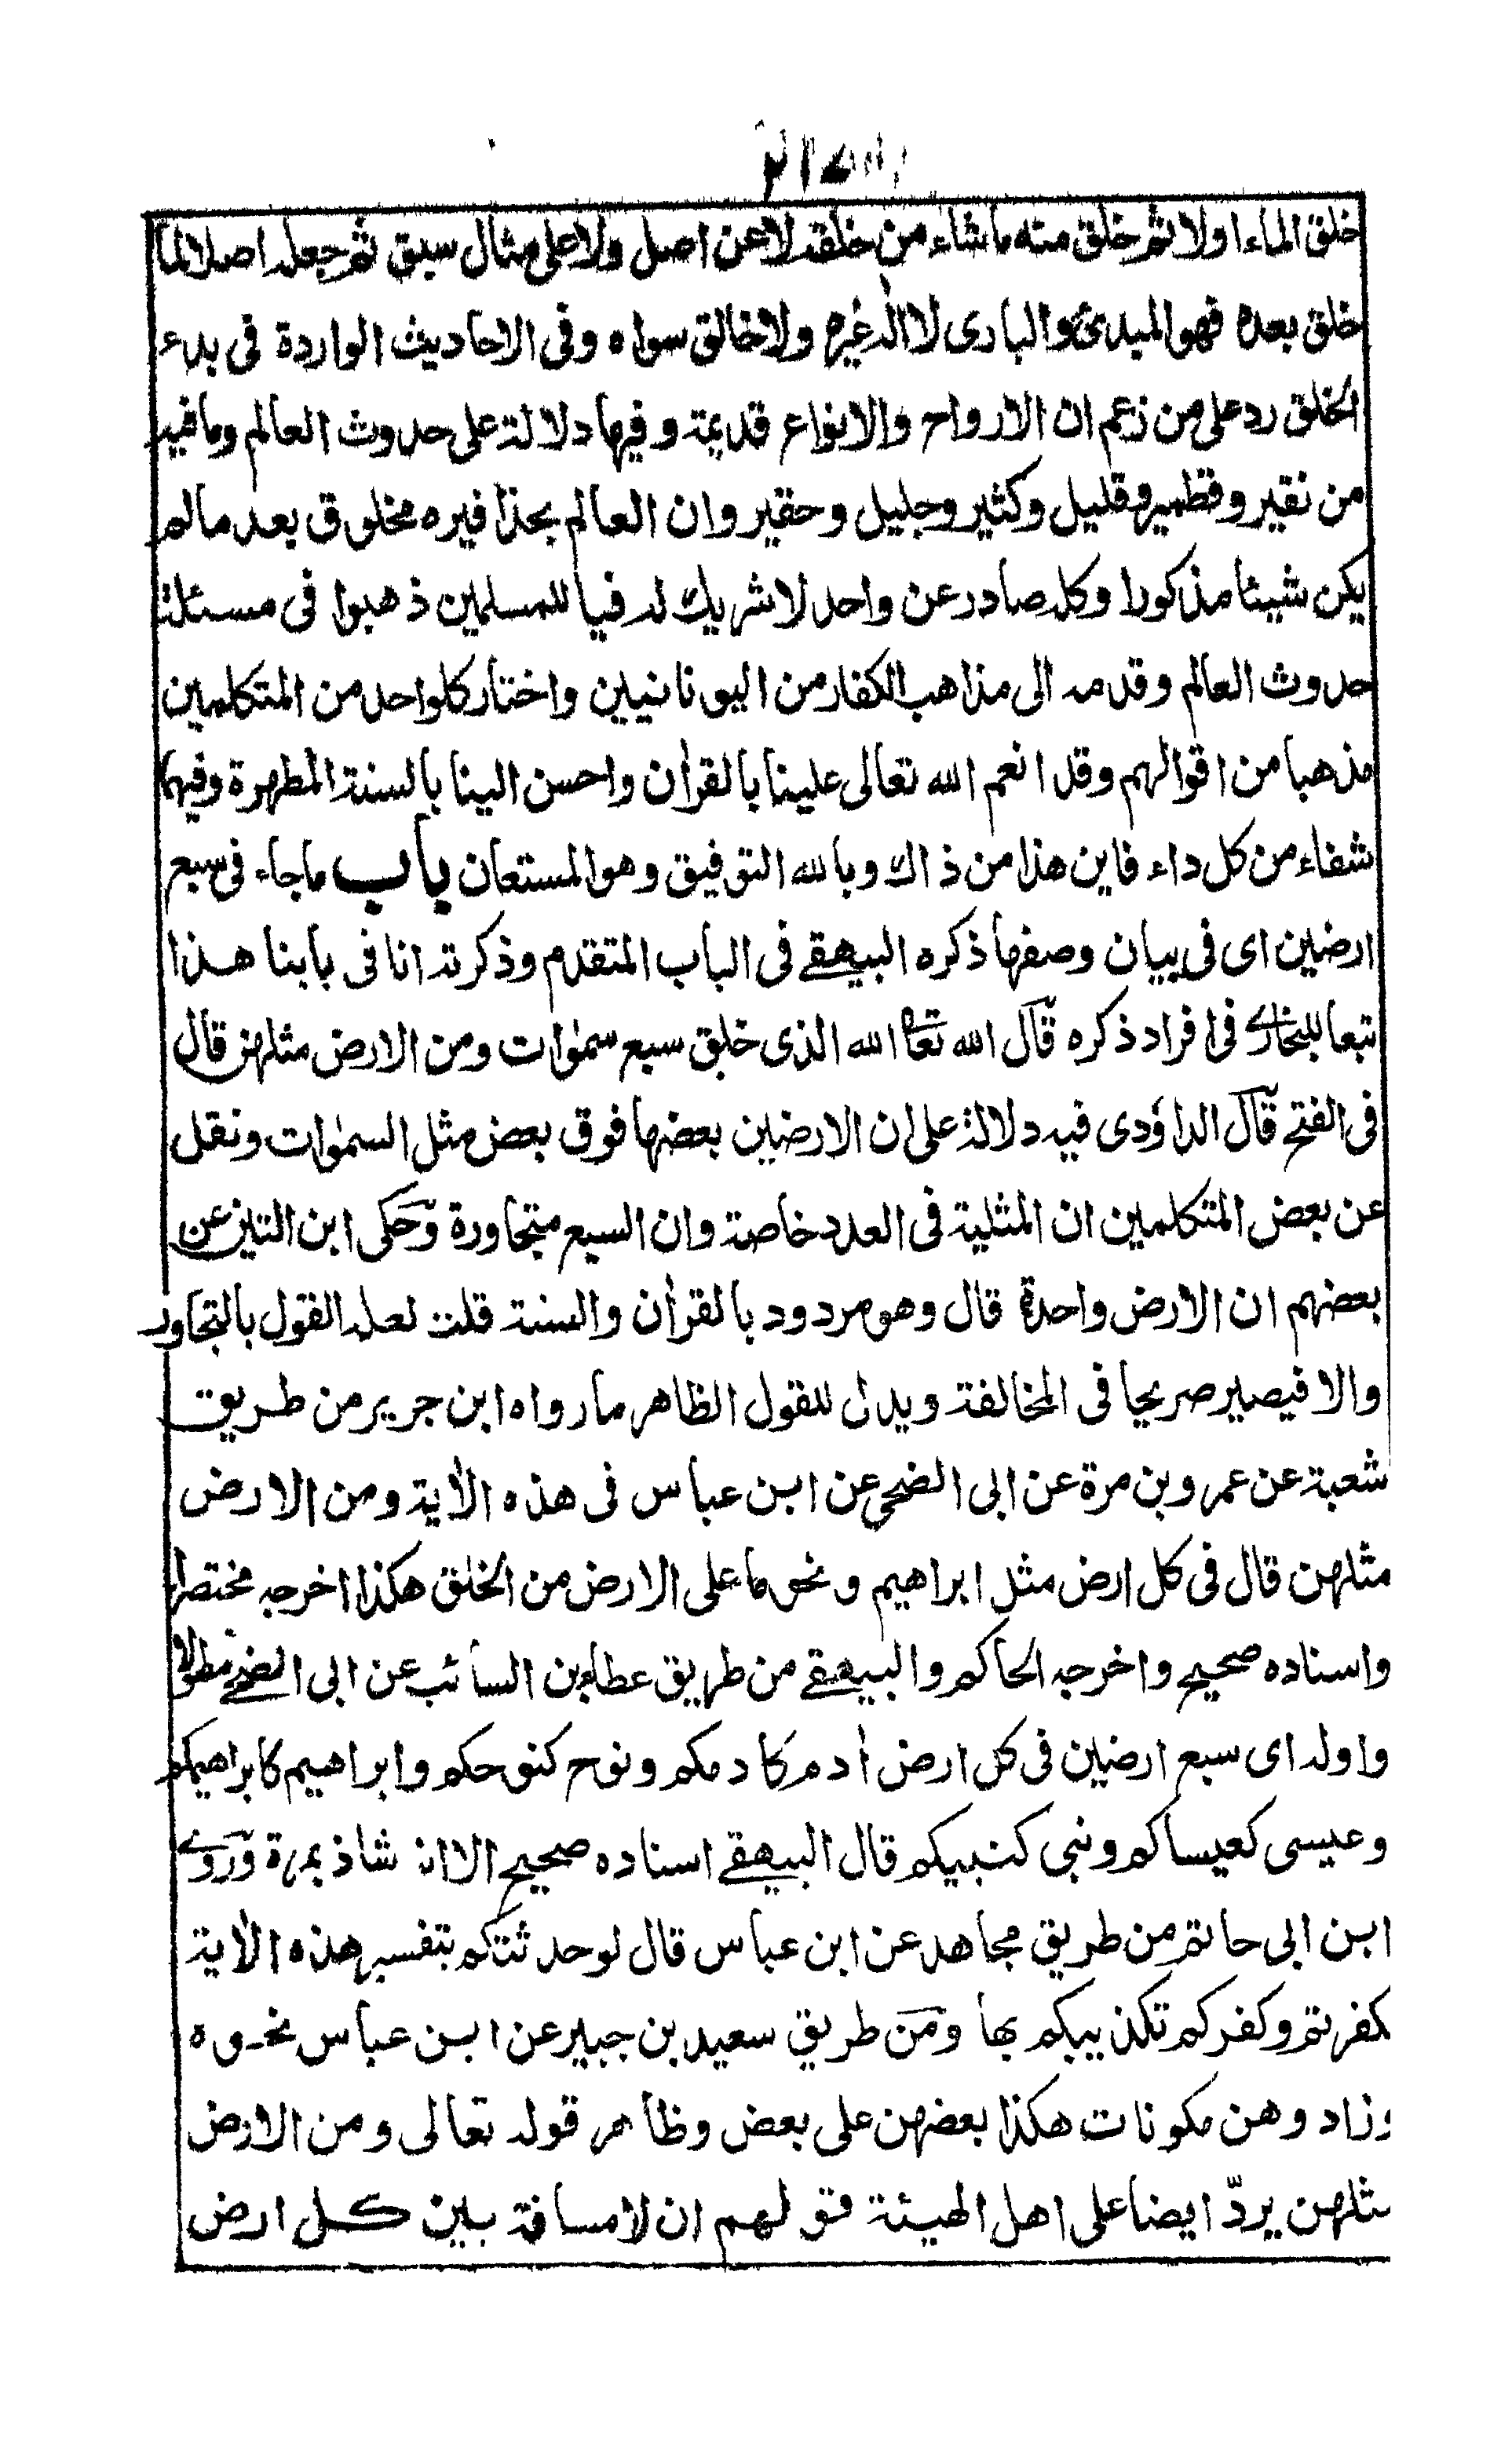 خلق الماء اولا ثم خلق منه ماشاء من خلقه لا عن اصل ولا على مثال سبق ثم جعله اصلا لما
خلق بعده فهو المبدئ والبارى لا اله غيره ولا خالق سواه وفى الاحاديث الواردة فى بدء
الخلق رد على من زعم ان الارواح والانواع قديمة وفيها دلالة على حدوث العالم وما فيه
من نقير وقطمير وقليل وكثير وجليل وحقير وان العالم بحذافيره مخلوق بعد مالم
يكن شيئا مذكورا وكله صادر عن واحد لا شريك له فيا للمسلمين ذهبوا فى مسئلة
حدوث العالم وقدمه الى مذاهب الكفار من اليونانيين واختار كلواحد من المتكلمين
مذهبا من اقوالهم وقد انعم الله تعالى علينا بالقرأن واحسن الينا بالسنة المطهرة وفيها
شفاء من كل داء فاين هذا من ذاك وبالله التوفيق وهو المستعان باب ماجاء فى سبع
ارضين اى فى بيان وصفها ذكره البيهقے فى الباب المتقدم وذكرته انا فى بابنا هذا
تبعا للبخارے فى افراد ذكره قال الله تعا الله الذى خلق سبع سمٰوات ومن الارض مثلهن قال
فى الفتح قال الداؤدى فيه دلالة على ان الارضين بعضها فوق بعض مثل السمٰوات ونقل
عن بعض المتكلمين ان المثلية فى العدد خاصة وان السبع متجاورة وحكى ابن التين عن
بعضهم ان الارض واحدة قال وهو مردود بالقرأن والسنة قلت لعله القول بالتجاور
والا فيصير صريحا فى المخالفة ويدل للقول الظاهر مارواه ابن جرير من طريق
شعبة عن عمرو بن مرة عن ابى الضحى عن ابن عباس فى هذه الأية ومن الارض
مثلهن قال فى كل ارض مثل ابراهيم ونحو ما على الارض من الخلق هكذا اخرجه مختصرا
واسناده صحيح واخرجه الحاكم والبيهقے من طريق عطاء بن السائب عن ابى الضحے مطولا
واوله اى سبع ارضين فى كل ارض أدم كادمكم ونوح كنوحكم وابراهيم كابراهيمكم
وعيسى كعيساكم ونبى كنبيكم قال البيهقے اسناده صحيح الا انه شاذ بمرة وروے
ابن ابى حاتم من طريق مجاهد عن ابن عباس قال لو حدثتكم بتفسير هذه الأية
لكفرتم وكفركم تكذيبكم بها ومن طريق سعيد بن جبير عن ابن عباس نحوه
وزاد وهن مكونات هكذا بعضهن على بعض وظاهر قوله تعالى ومن الارض
مثلهن يردّ ايضا على اهل الهيئة قولهم ان لا مسافة بين كل ارض